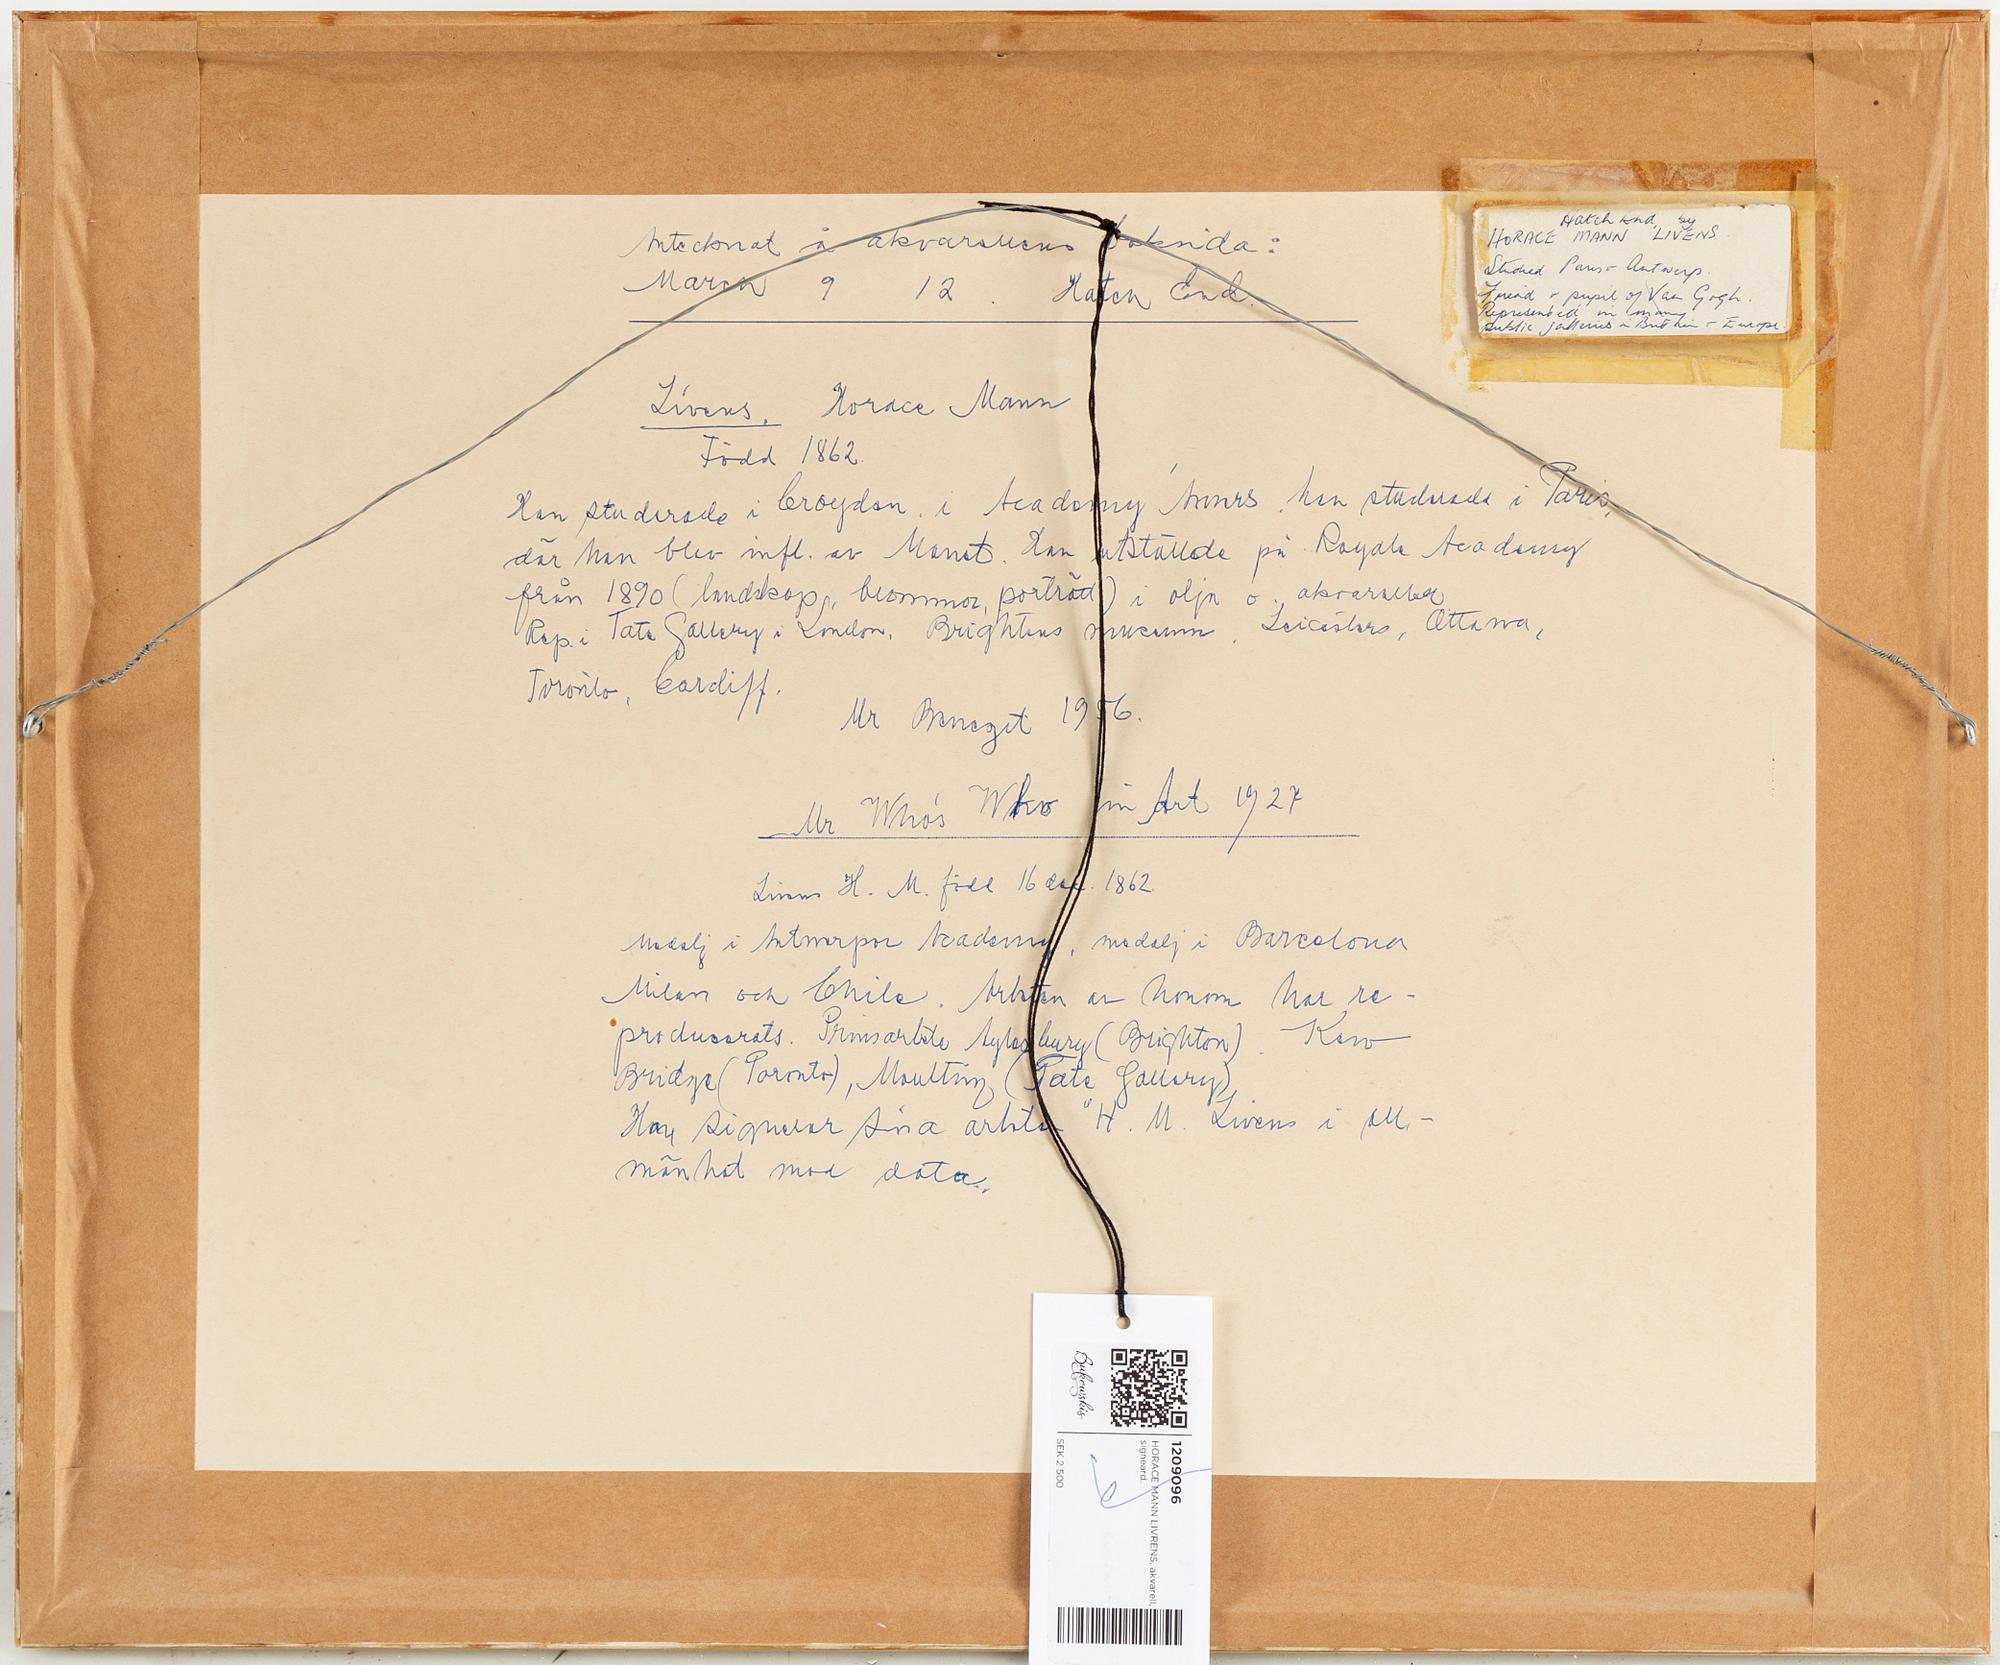 Antecknat å akvarellens baksida:
March 9 12. Hatch End.
Hatch End, by
HORACE MANN LIVENS.
Studied Paris - Antwerp.
Friend - pupil of Van Gogh.
Represented in many
public galleries in Britain - Europe.
Livens, Horace Mann
Född 1862.
Han studerade i Croydon, i Academy Anvers, han studerade i Paris,
där han blev infl. av Manet. Han utställde på Royale Academy
från 1890 (landskap, blommor, porträtt) i olja o. akvareller
Rep. i Tate Gallery i London, Brightons museum, Leicesters, Ottawa,
Toronto, Cardiff.
Ur Benezit 1956.
Ur Who's Who in Art 1927
Livens H. M. född 16 dec. 1862.
Medalj i Antwerpen Academy, medalj i Barcelona
Milan och Chile. Arbeten av honom har re-
producerats. Aylesbury (Brighton). Kew
Bridge (Toronto), (Tate Gallery)
Han signerar sina arbeten "H. M. Livens i all-
mänhet med data.
Bukowskis
1209096
HORACE MANN LIVRENS, akvarell,
signeard.
SEK 2 500